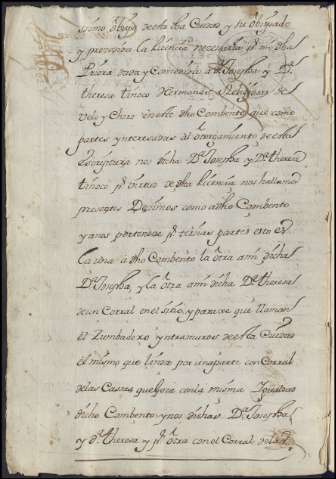 simo Obispo de esta dha Ciudad y su Obispado
y precedida la licencia necesaria pr. mi dha
Priora dada y Concedida a Da. Josepha y Da.
theresa tinoco Hermanas Religiosas de
Velo y Choro en este dho Combento que como
partes y interesadas al otorgamiento de esta
Escriptura nos dicha Da. Josepha y Da. theresa
tinoco pr. virtud de dha licencia nos hallamos
presentes Decimos como a dho Combento
y a nos pertenece pr. tercias partes esto es
la una a dho Combento la otra a mi dicha
Da. Josepha, y la otra a mi dicha Da. theresa
de un Corral en el sitio y paraxe que llaman
el Zumbadero extramuros de esta Ciudad
el mismo que linda por una parte con Corral
de las Casas que goza con la misma
dicho Combento y nos dichas Da. Josepha
y Da. theresa y pr. otra con el Corral de las